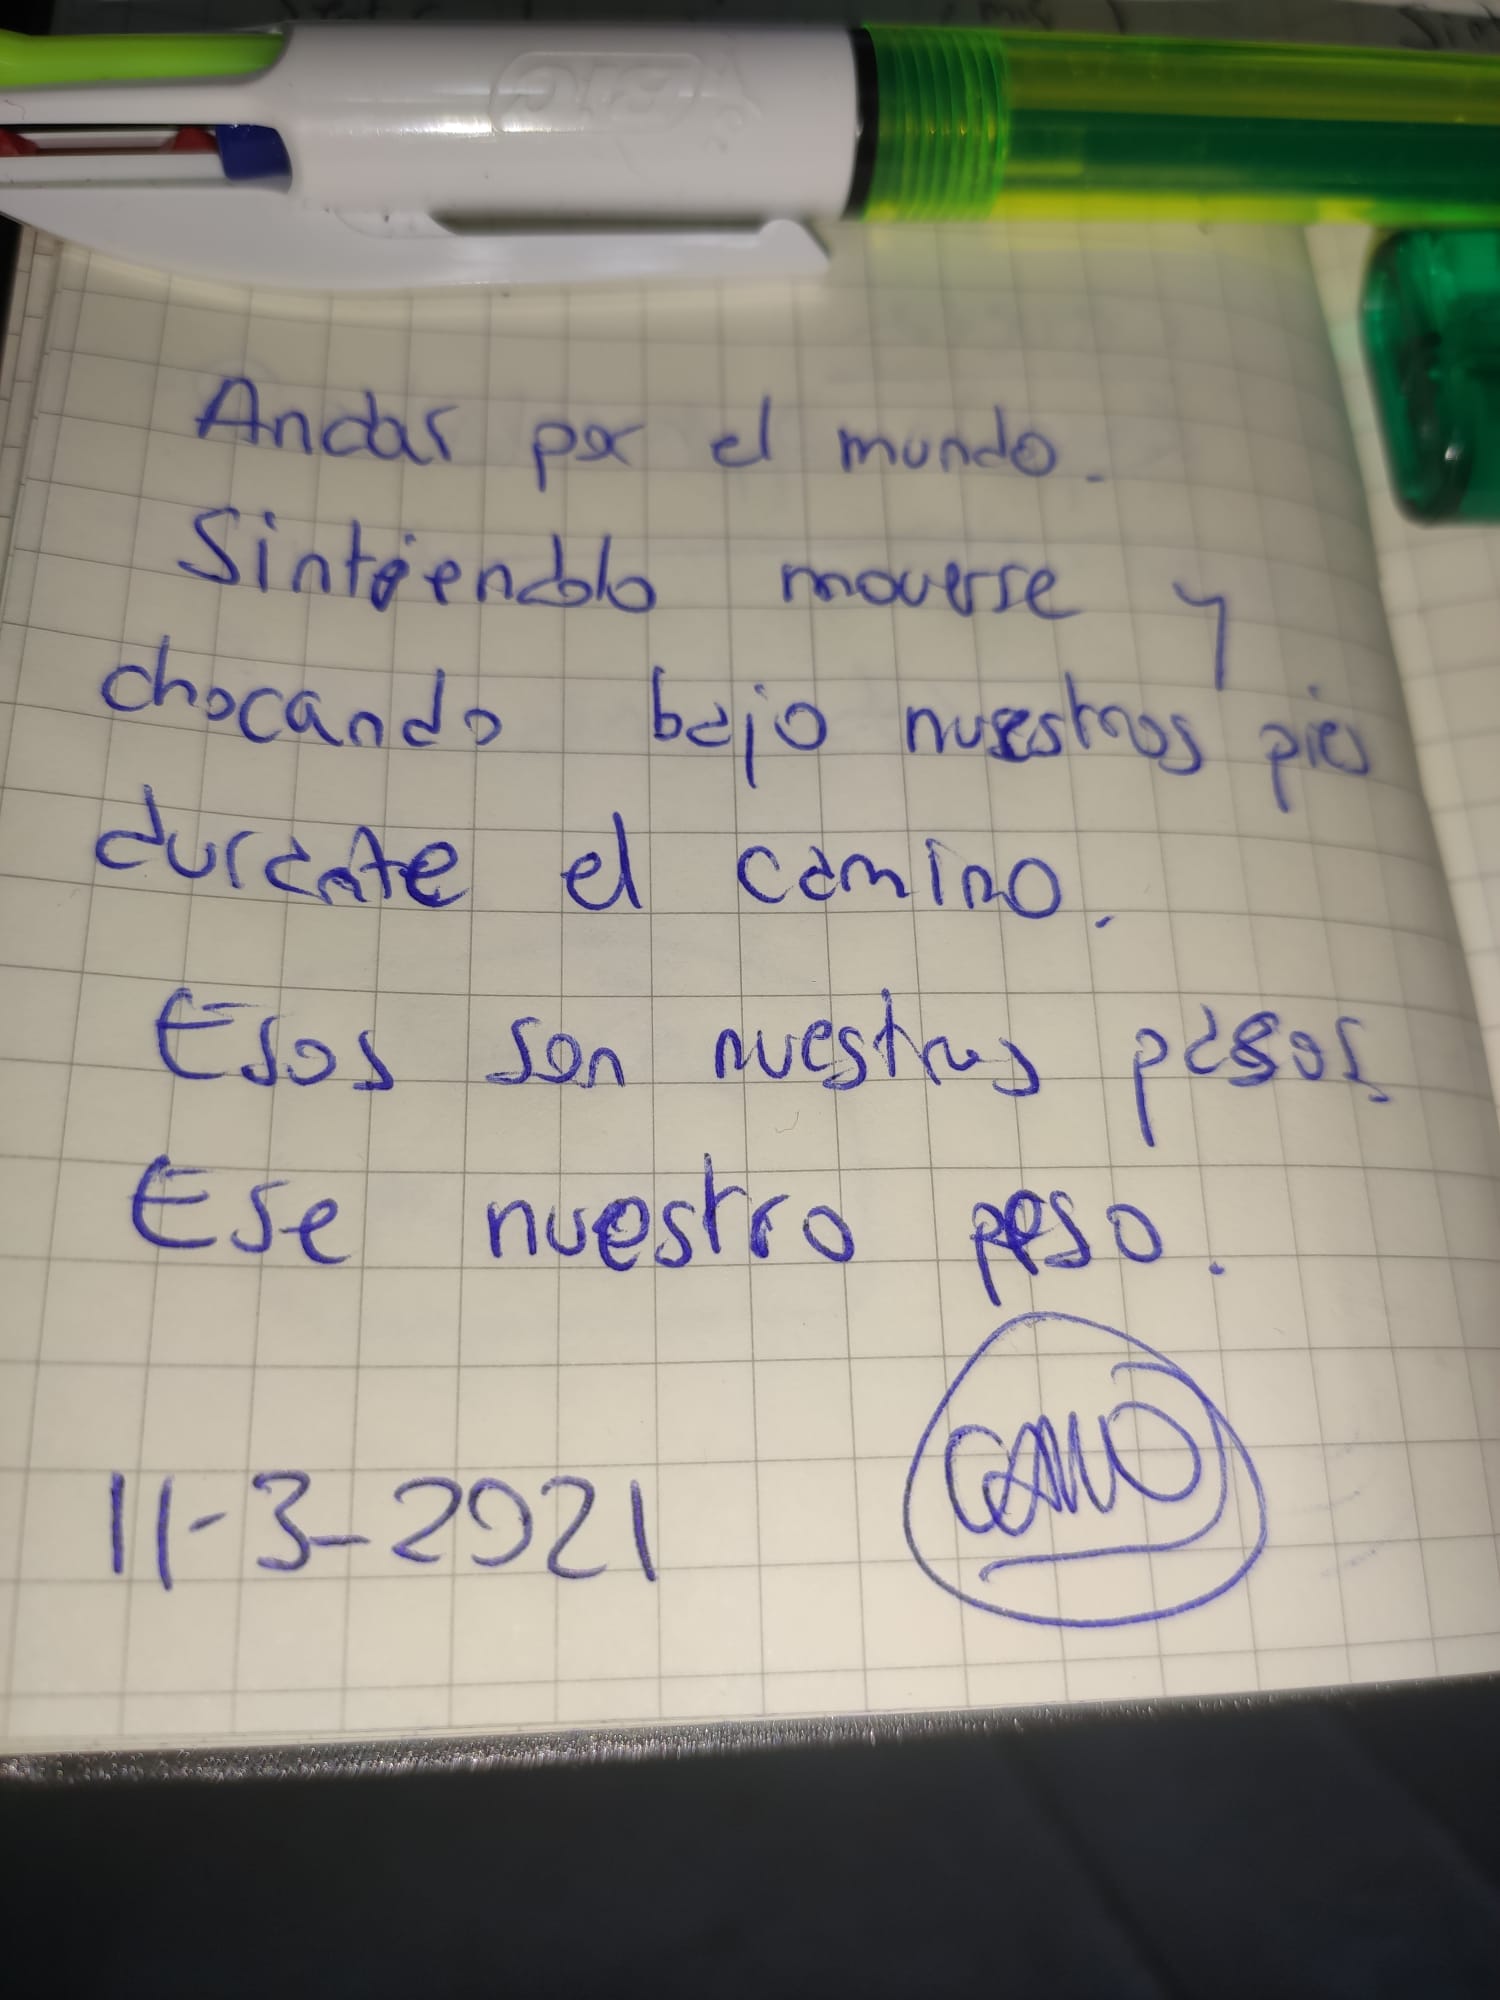 BIC
Andar por el mundo.
Sintiendolo moverse y
chocando bajo nuestros pies
durante el camino.
Esos son nuestros pasos
Ese nuestro peso.
CANO
11-3-2021